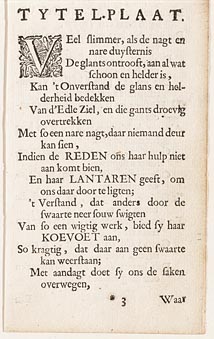 TYTEL-PLAAT.
VEel slimmer, als de nagt en
nare duysternis
De glants ontrooft, aan al wat
schoon en helder is,
Kan 't Onverstand de glans en hel-
derheid bedekken
Van d'Edle Ziel, en die gants droevig
overtrekken
Met so een nare nagt, daar niemand deur
kan sien,
Indien de REDEN ons haar hulp niet
aan komt bien,
En haar LANTAREN geeft, om
ons daar door te ligten;
't Verstand, dat anders door de
swaarte neer souw swigten
Van so een wigtig werk, bied sy haar
KOEVOET aan,
So kragtig, dat daar aan geen swaarte
kan weerstaan;
Met aandagt doet sy ons de saken
overwegen,
3 Waar